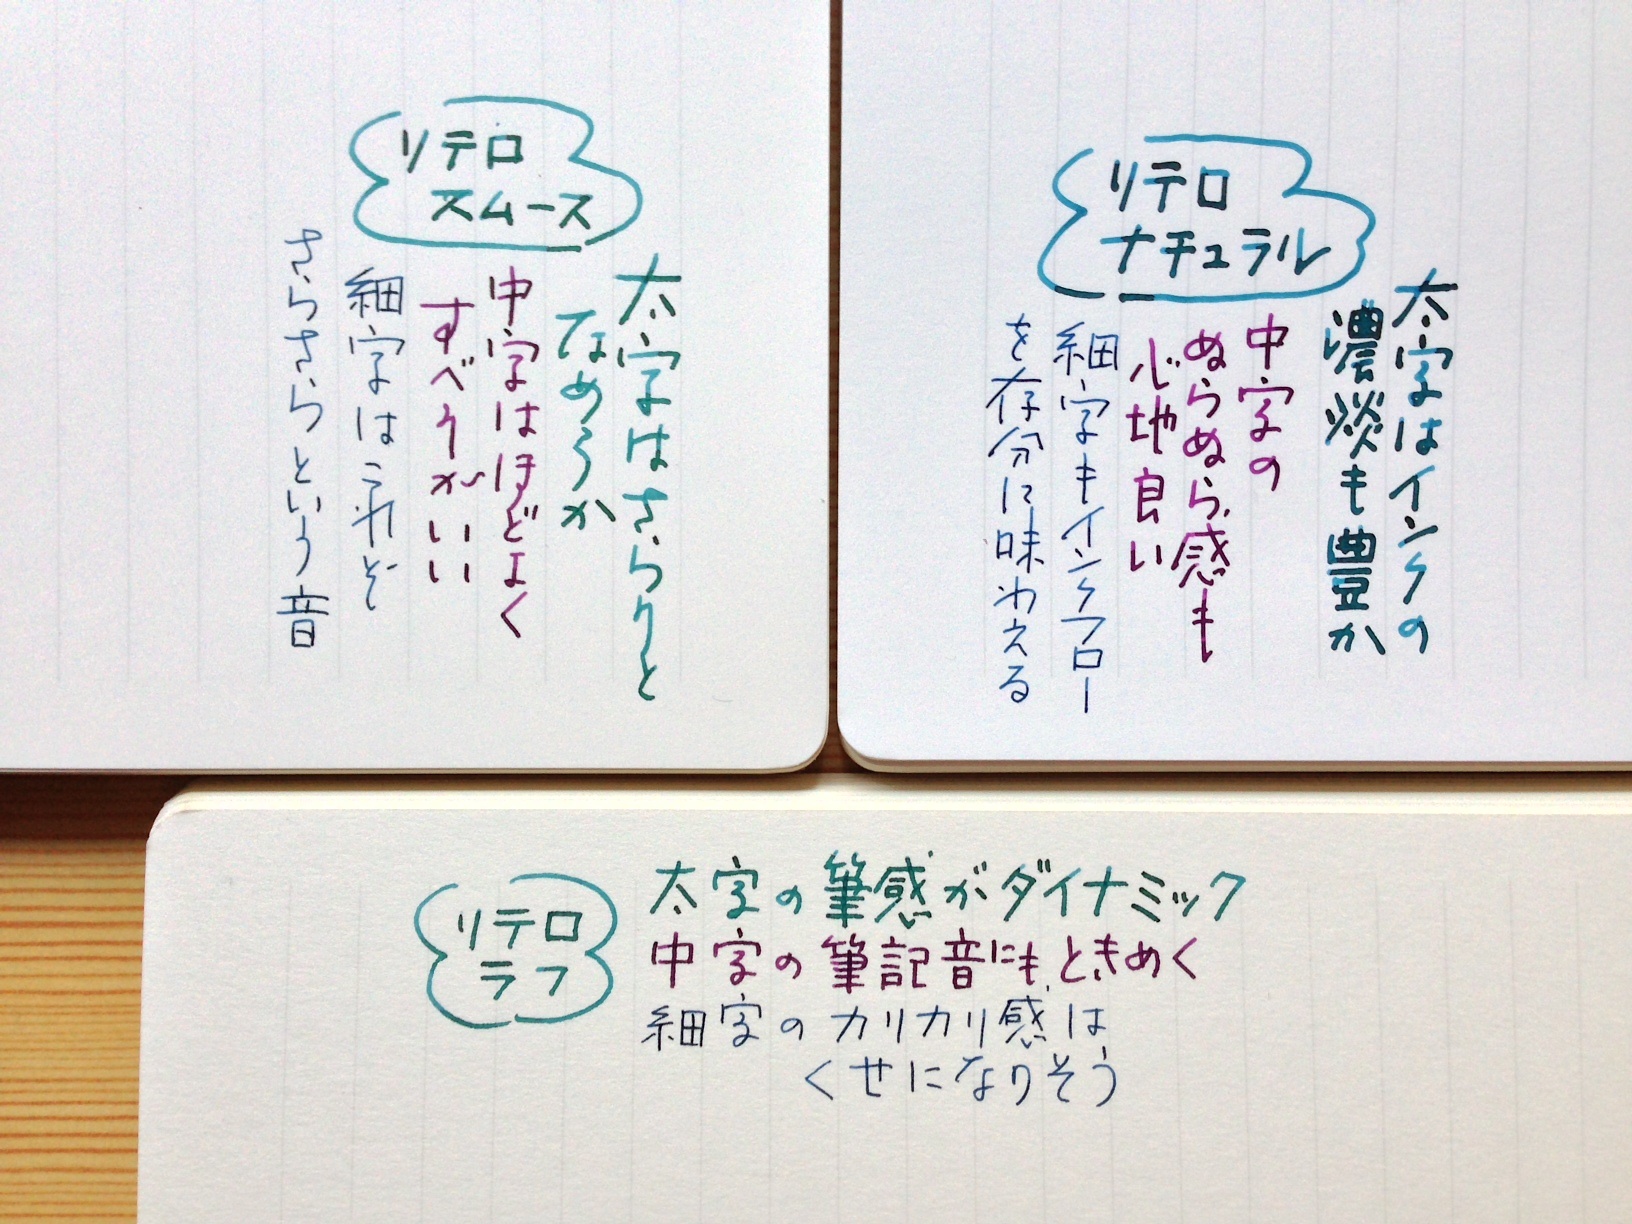 リテロ
スムース
太字はさらりと
なめらか
中字はほどよく
すべりがいい
細字はこれぞ
さらさらという音
リテロ
ナチュラル
太字はインクの
濃淡も豊か
中字の
ぬらぬら感も
心地良い
細字もインクフロー
を存分に味わえる
リテロ
ラフ
太字の筆感がダイナミック
中字の筆記音にもときめく
細字のカリカリ感は
くせになりそう